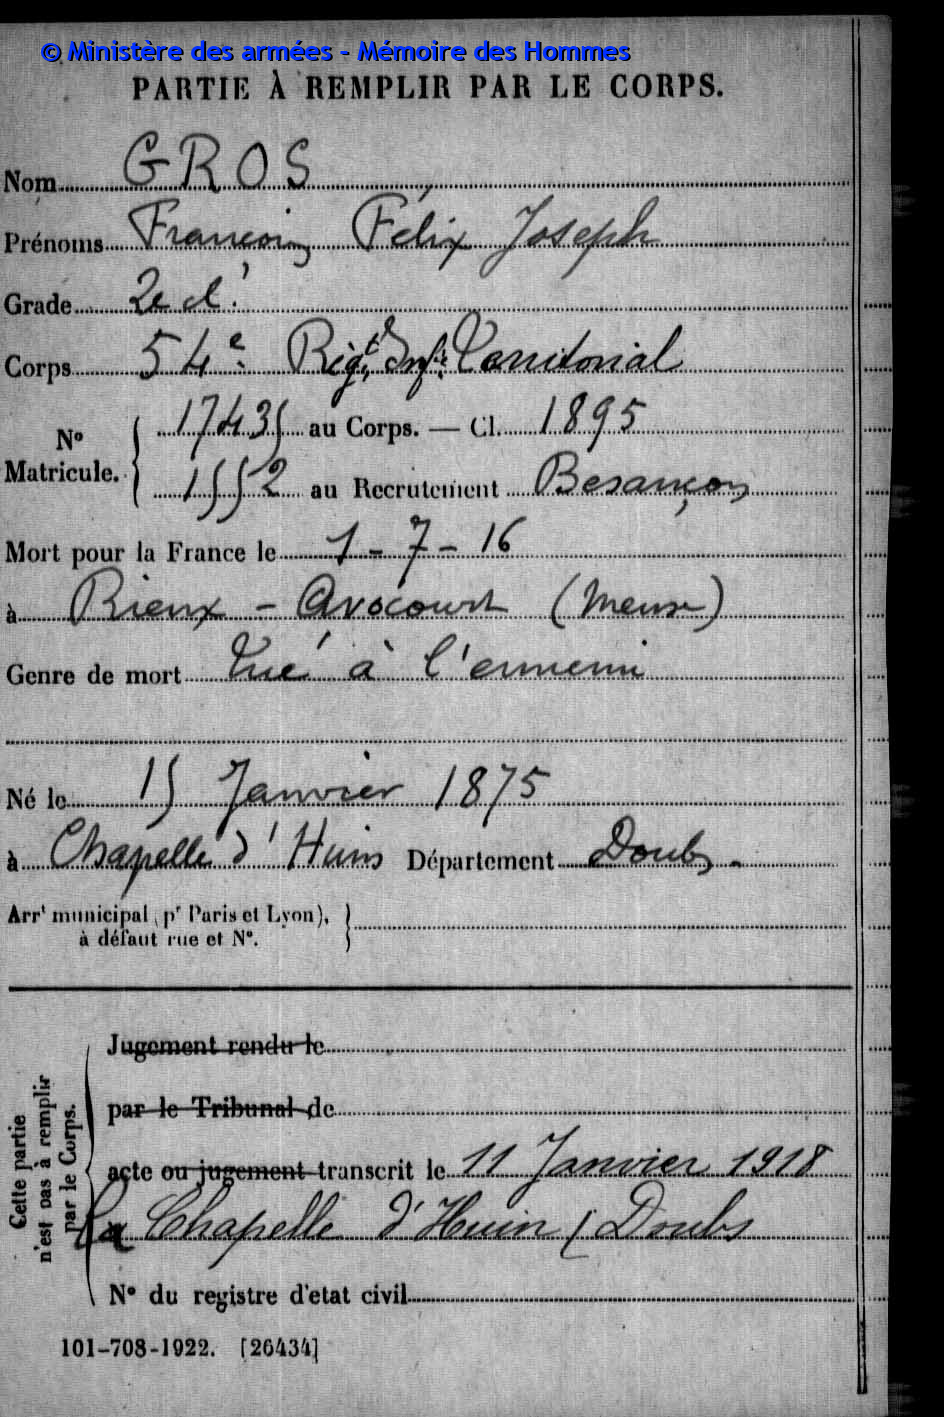 © Ministère des armées - Mémoire des Hommes
PARTIE À REMPLIR PAR LE CORPS.
Nom GROS
Prénoms François Félix Joseph
Grade 2e cl.
Corps 54e Régt Inf. Territorial
No Matricule. 17435 au Corps. — Cl. 1895
1552 au Recrutement Besançon
Mort pour la France le 1-7-16
à Rieux - Avocourt (Meuse)
Genre de mort Tué à l'ennemi
Né le 15 Janvier 1875
à Chapelle d'Huins Département Doubs.
Arrt municipal (pr Paris et Lyon),
à défaut rue et N°.
Cette partie
n'est pas à remplir
par le Corps.
Jugement rendu le
par le Tribunal de
acte ou jugement transcrit le 11 Janvier 1918
La Chapelle d'Huin (Doubs
N° du registre d'etat civil
101-708-1922. [26434]